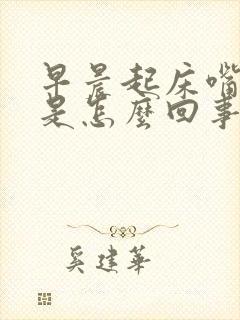 早晨起床嘴
是怎麼回事
奚建華